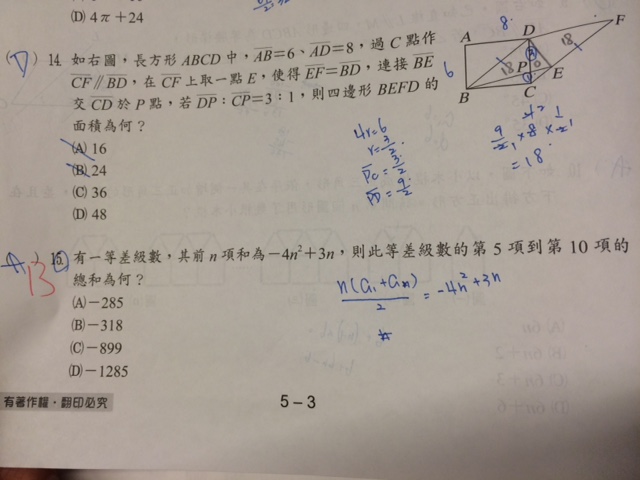 (D) 4π+24
(D) 14. 如右圖，長方形 ABCD 中，AB=6、AD=8，過 C 點作
CF∥BD，在 CF 上取一點 E，使得 EF=BD，連接 BE
交 CD 於 P 點，若 DP：CP=3：1，則四邊形 BEFD 的
面積為何？
(A) 16
(B) 24
(C) 36
(D) 48
A D F
B C E P
8
6
18
18
4r=6
r=3/2
PC=3/2
PD=9/2
9/2×8×1/2
=18
A 13 15. 有一等差級數，其前 n 項和為 −4n²+3n，則此等差級數的第 5 項到第 10 項的
總和為何？
(A) −285
(B) −318
(C) −899
(D) −1285
n(a₁+aₙ)/2 = −4n²+3n
有著作權・翻印必究
5－3